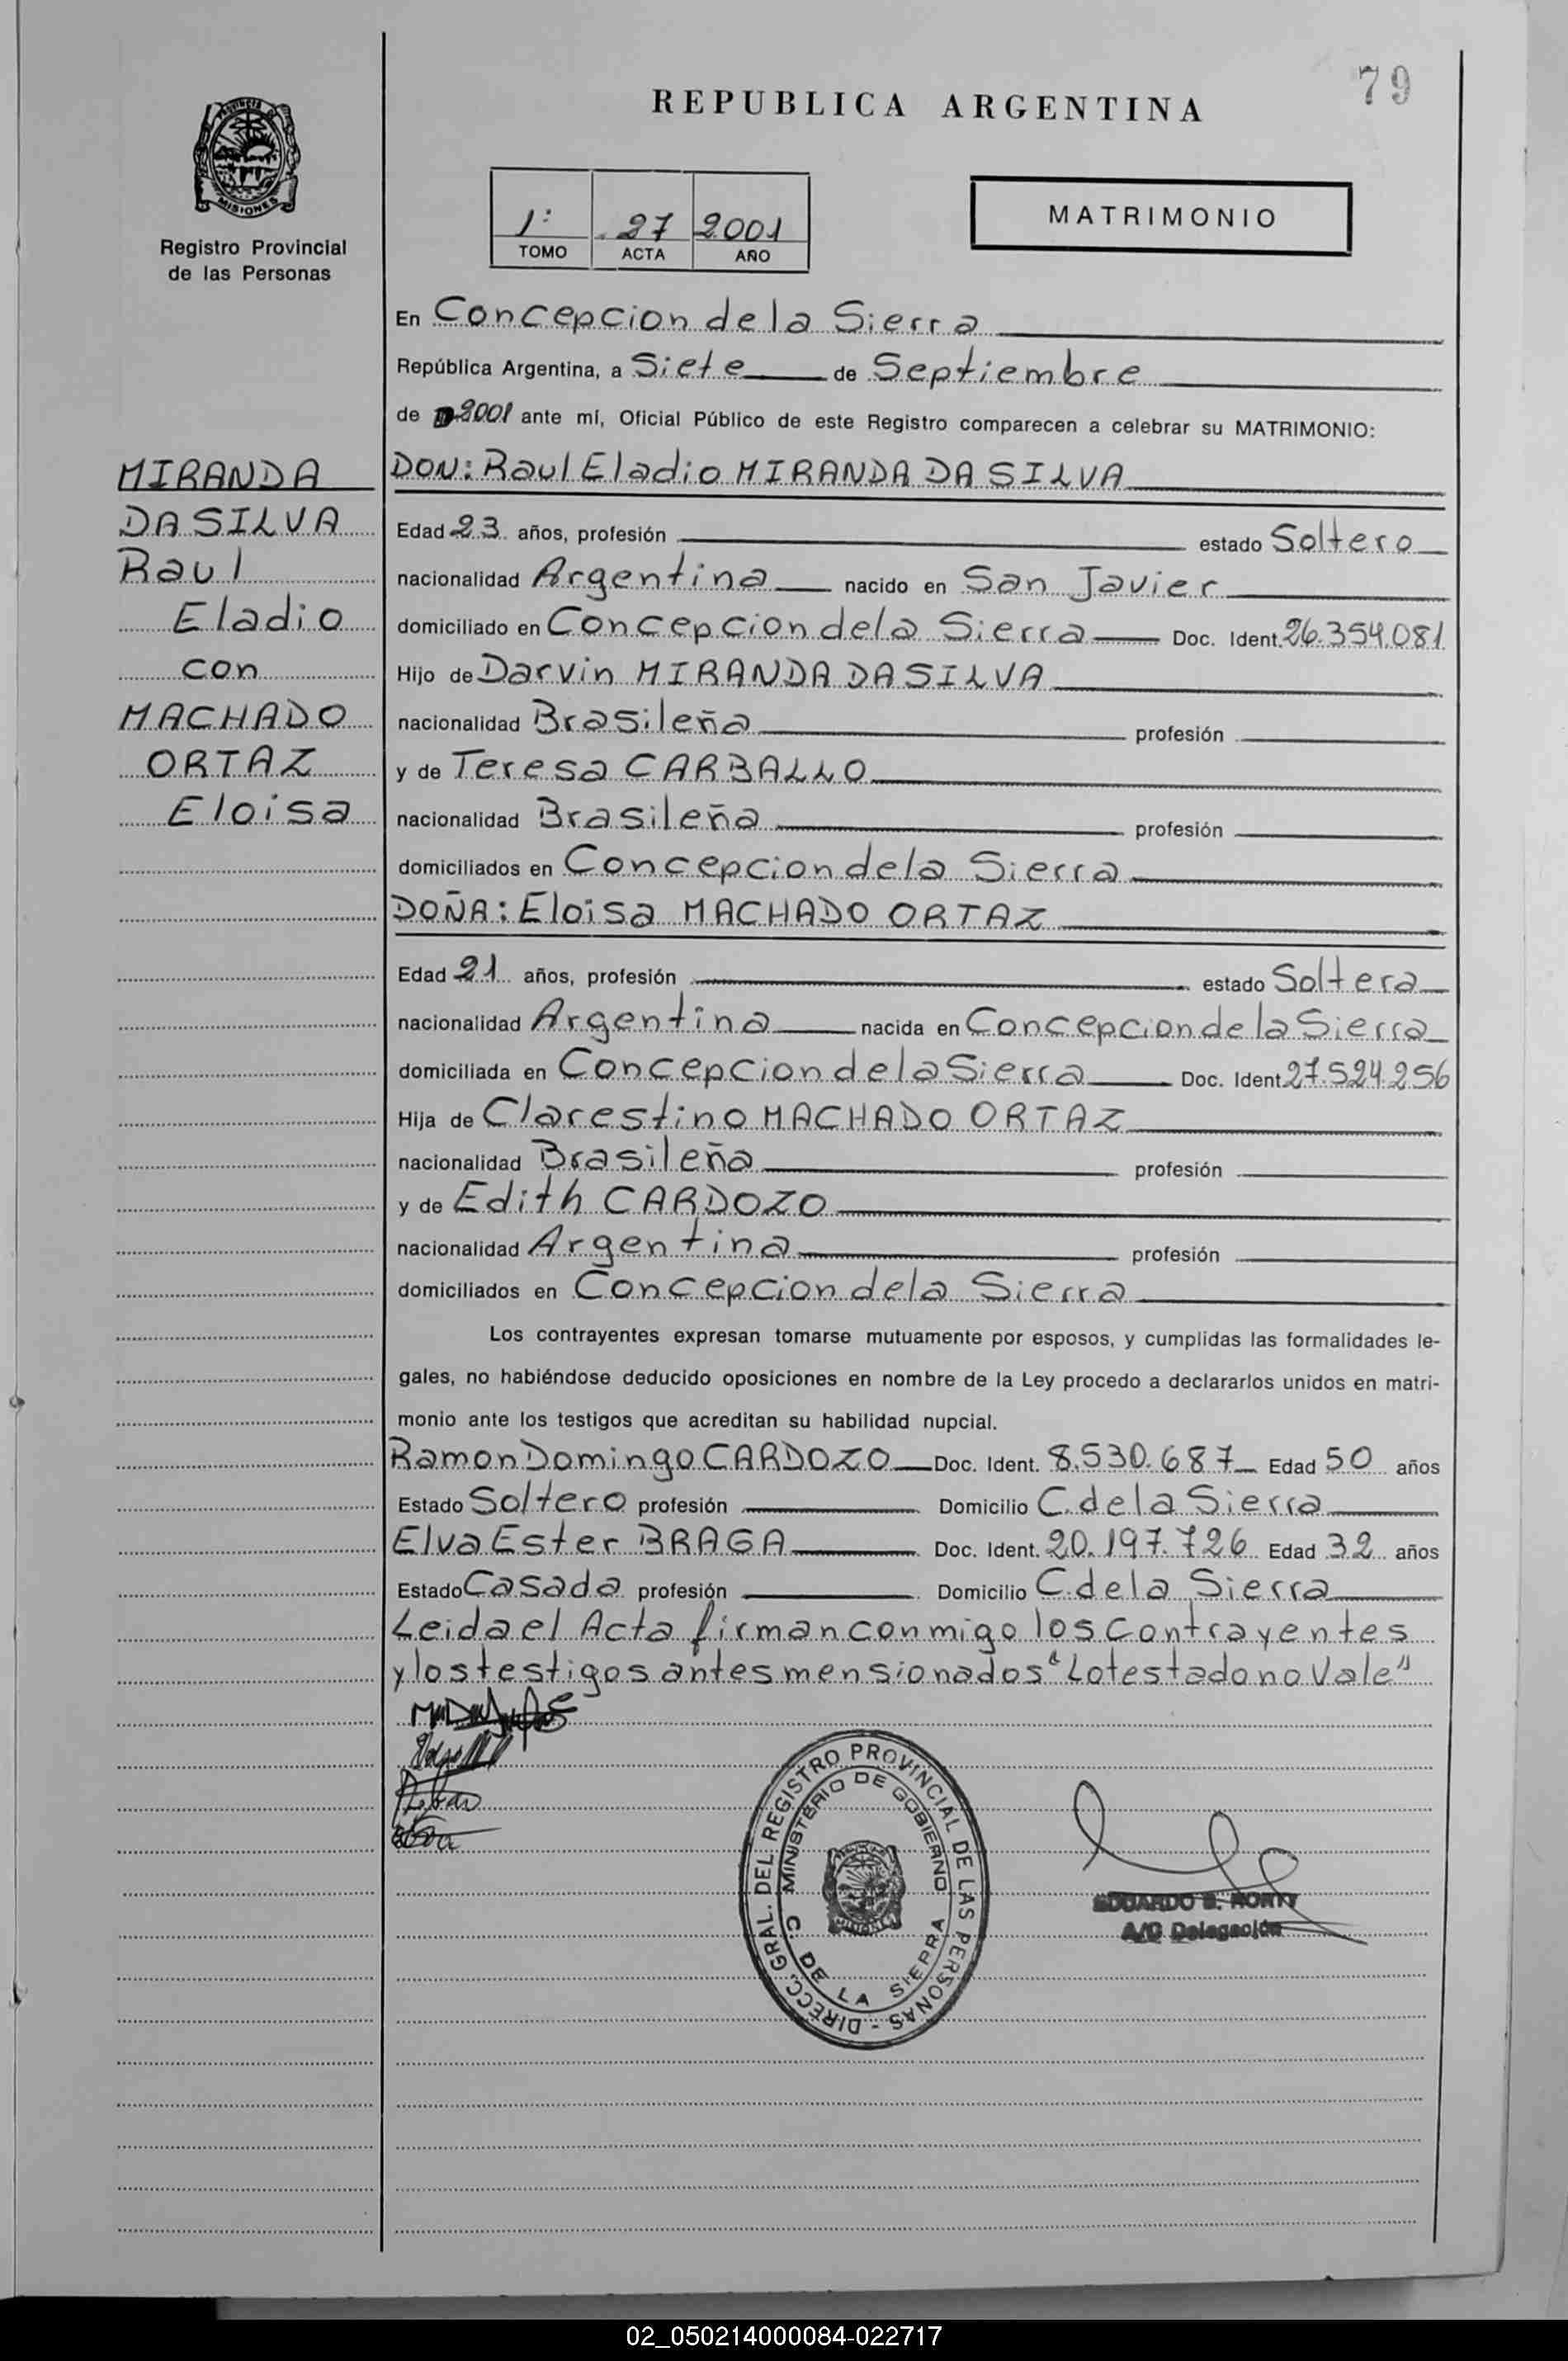 79
REPUBLICA ARGENTINA
PROVINCIA
MISIONES
Registro Provincial
de las Personas
1: 27 2001
TOMO ACTA AÑO
MATRIMONIO
En Concepcion de la Sierra
República Argentina, a Siete de Septiembre
de 2001 ante mí, Oficial Público de este Registro comparecen a celebrar su MATRIMONIO:
MIRANDA
DA SILVA
Raul
Eladio
con
MACHADO
ORTAZ
Eloisa
DON: Raul Eladio MIRANDA DA SILVA
Edad 23 años, profesión estado Soltero
nacionalidad Argentina nacido en San Javier
domiciliado en Concepcion de la Sierra Doc. Ident. 26.354.081
Hijo de Darvin MIRANDA DA SILVA
nacionalidad Brasileña profesión
y de Teresa CARBALLO
nacionalidad Brasileña profesión
domiciliados en Concepcion de la Sierra
DOÑA: Eloisa MACHADO ORTAZ
Edad 21 años, profesión estado Soltera
nacionalidad Argentina nacida en Concepcion de la Sierra
domiciliada en Concepcion de la Sierra Doc. Ident. 27.524.256
Hija de Clarestino MACHADO ORTAZ
nacionalidad Brasileña profesión
y de Edith CARDOZO
nacionalidad Argentina profesión
domiciliados en Concepcion de la Sierra
Los contrayentes expresan tomarse mutuamente por esposos, y cumplidas las formalidades le-
gales, no habiéndose deducido oposiciones en nombre de la Ley procedo a declararlos unidos en matri-
monio ante los testigos que acreditan su habilidad nupcial.
Ramon Domingo CARDOZO Doc. Ident. 8.530.687 Edad 50 años
Estado Soltero profesión Domicilio C. de la Sierra
Elva Ester BRAGA Doc. Ident. 20.197.726 Edad 32 años
Estado Casada profesión Domicilio C. de la Sierra
Leida el Acta firman conmigo los Contrayentes
y los testigos antes mensionados "Lo testado no Vale"
DIRECC. GRAL. DEL REGISTRO PROVINCIAL DE LAS PERSONAS -
MINISTERIO DE GOBIERNO
C. DE LA SIERRA
EDUARDO
A/C Delegación
02_050214000084-022717